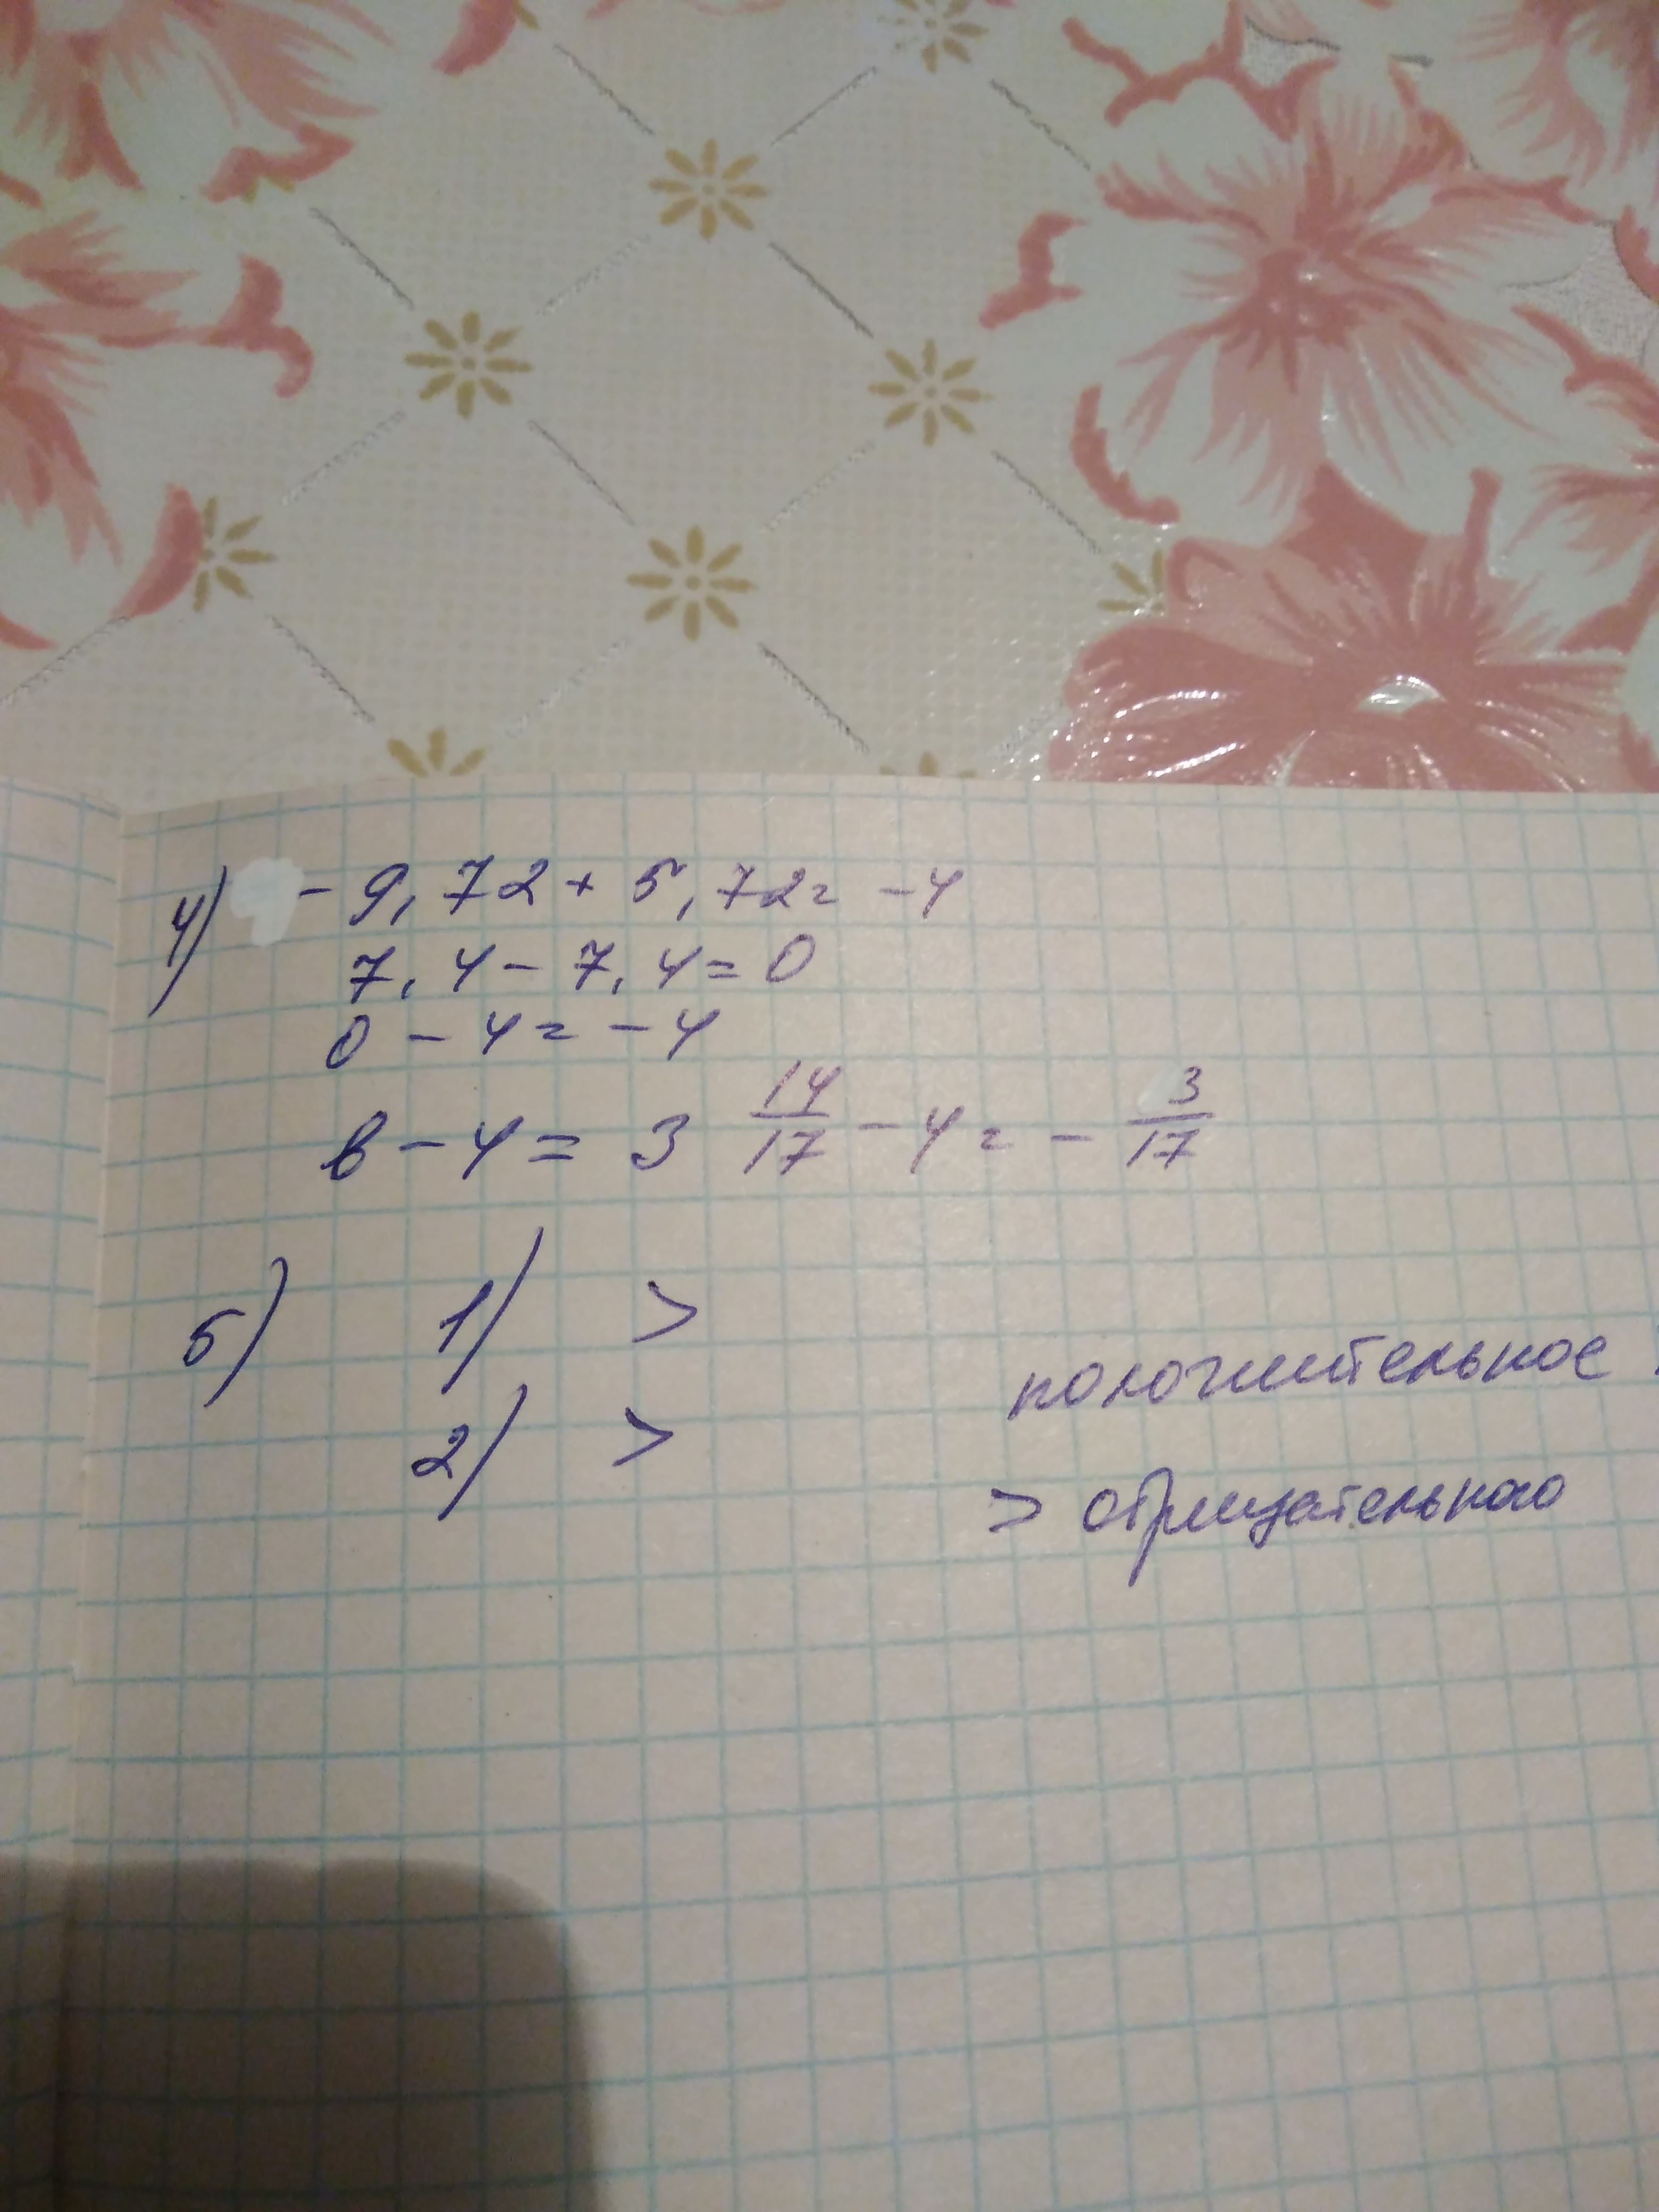 4) - 9,72 + 5,72 = -4
7,4 - 7,4 = 0
0 - 4 = - 4
в - 4 = 3 14/17 - 4 = - 3/17
5) 1) >
положительное
2) >
> отрицательного